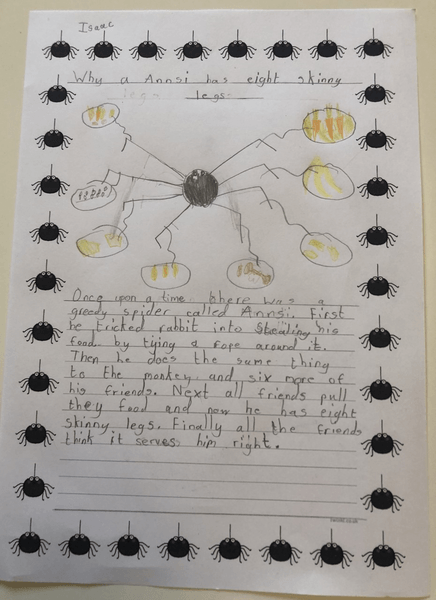 Isaac
Why a Annsi has eight skinny
legs legs.
Once upon a time. there was a
greedy spider called Annsi. First
he tricked rabbit into Stealing his
food by tying a rope around it.
Then he does the same thing
to the monkey and six more of
his friends. Next all friends pull
they food and now he has eight
skinny legs. Finally all the friends
think it serves him right.